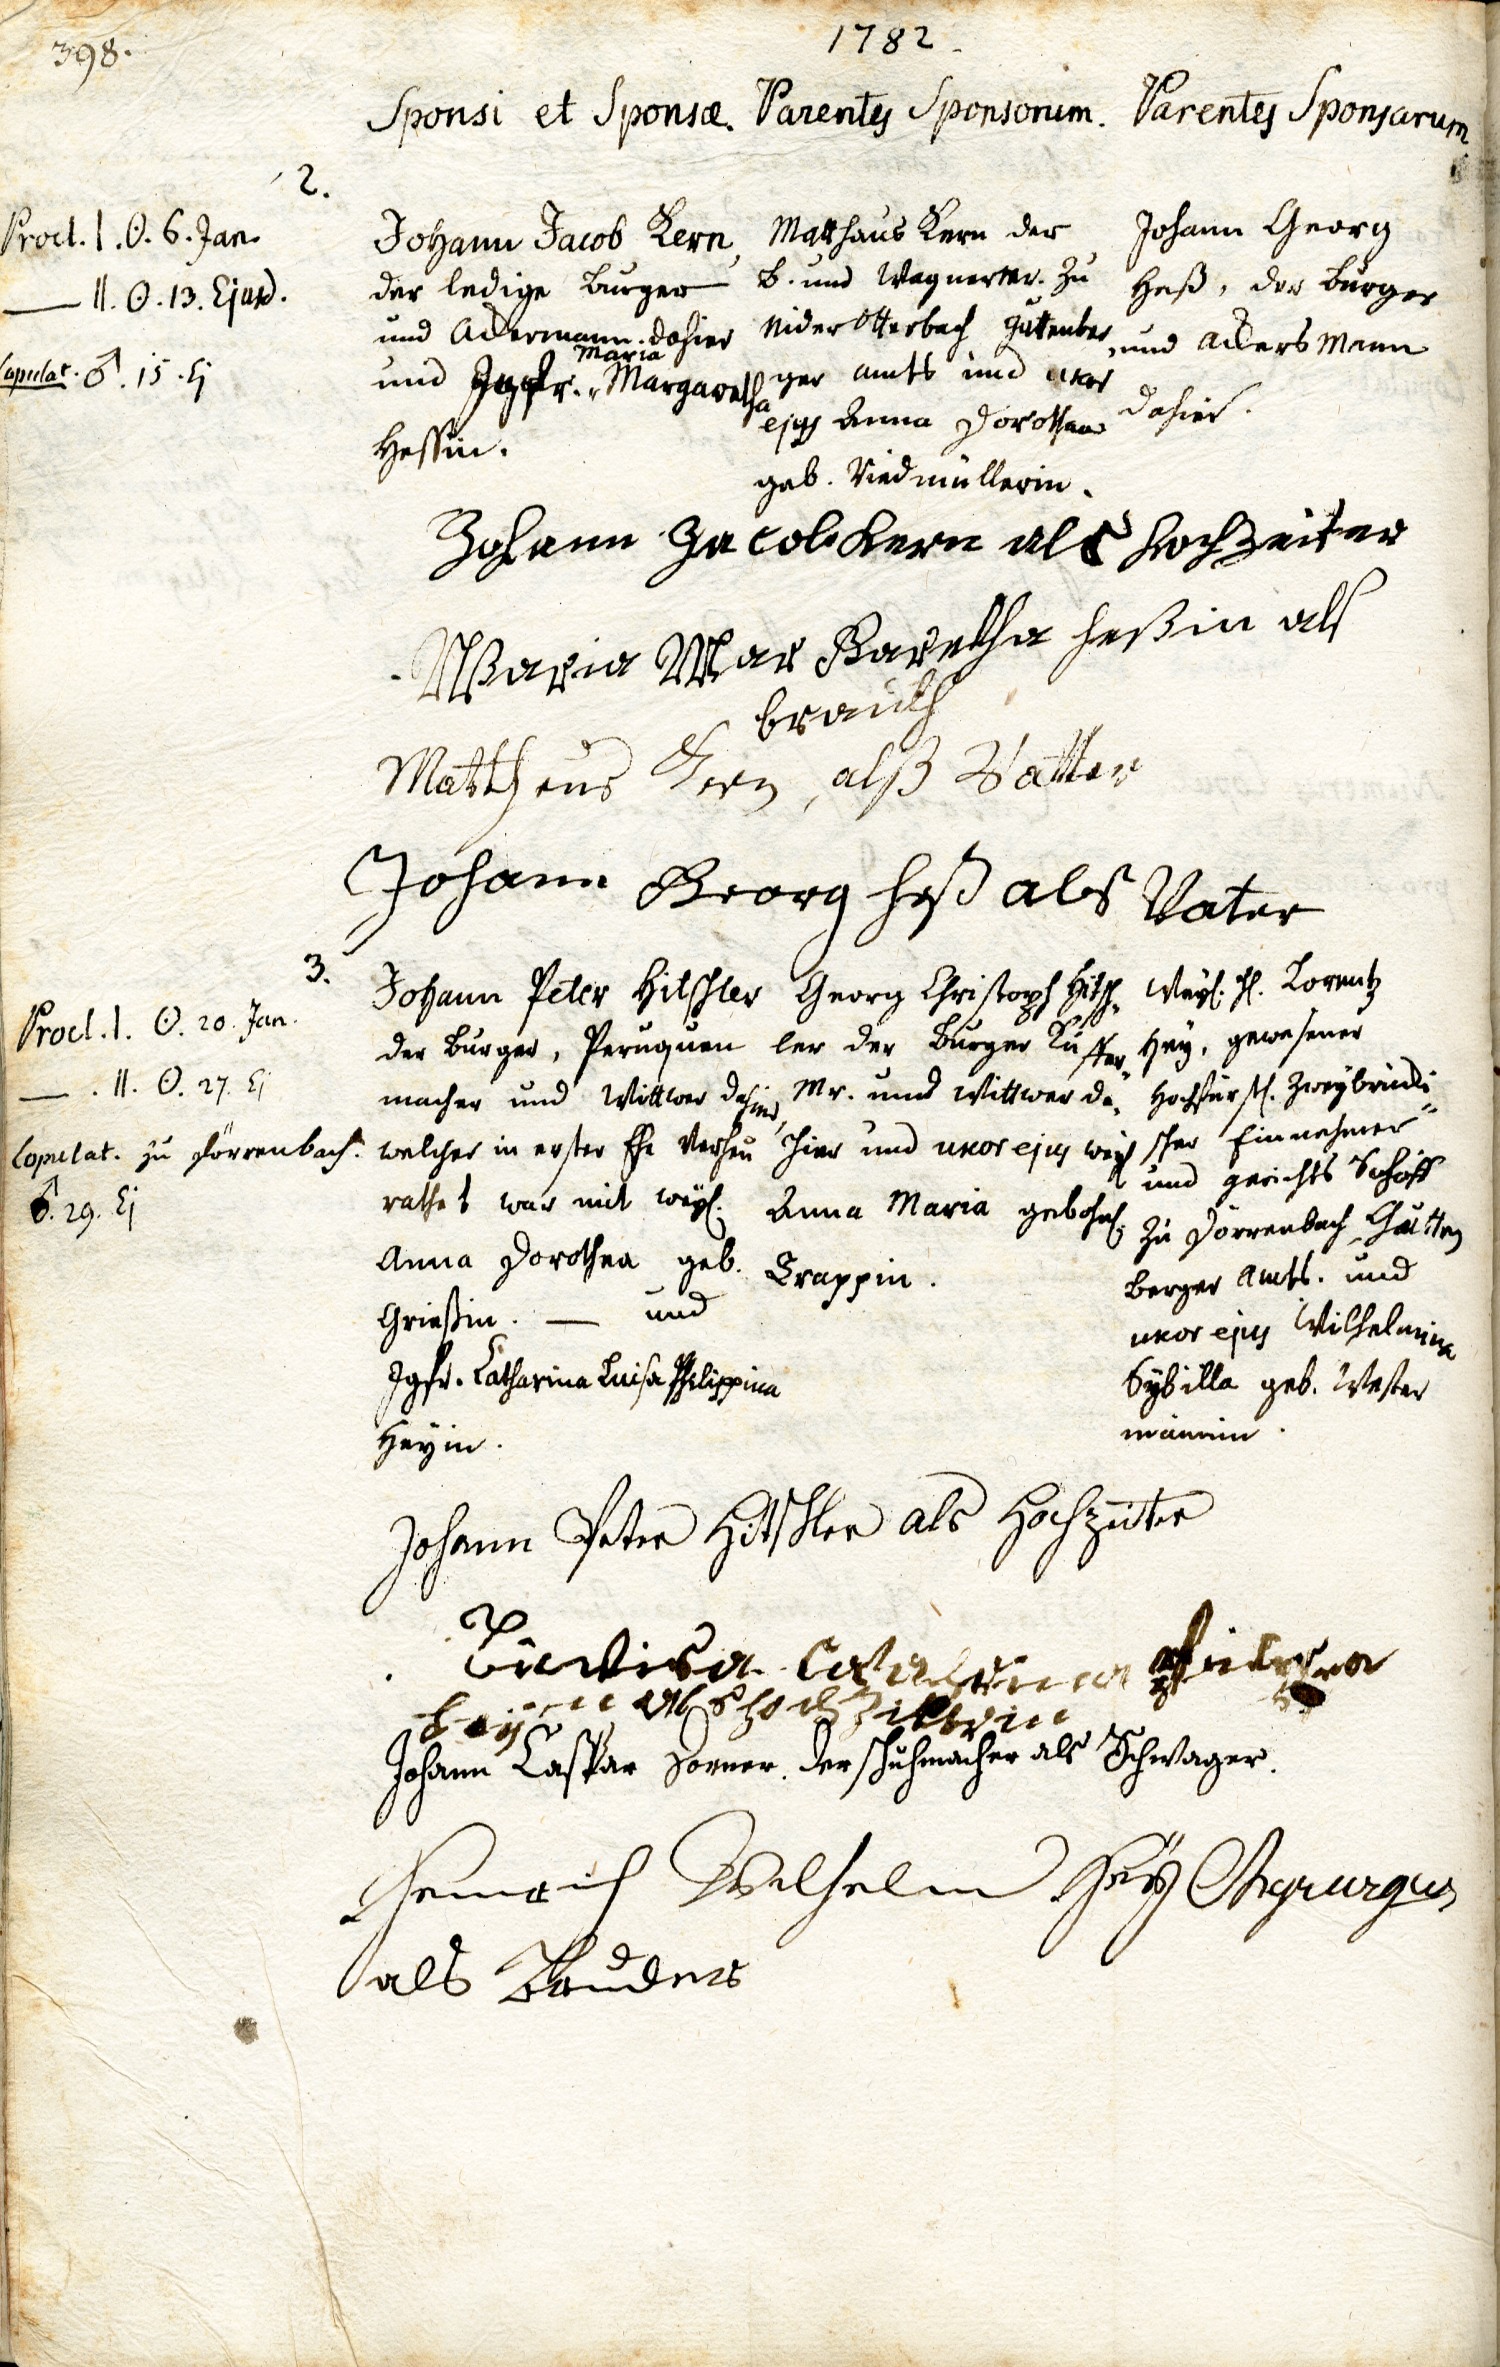 398.
1782.
Sponsi et Sponsæ. Parentes Sponsorum. Parentes Sponsarum
2.
Procl. I. ☉. 6. Jan.
— II. ☉. 13. Ejusd.
Copulat. ♂. 15. Ej
Johann Jacob Kern,
der ledige Burger
und Ackermann dahier
und Jgfr. Maria Margaretha
Hessin.
Matthäus Kern der
B. und Wagner Mr. zu
Nider Otterbach Guttenber
ger amts und uxor
ejus Anna Dorothea
geb. Riedmüllerin.
Johann Georg
Heß, der Burger
und Ackers Mann
dahier.
Johann Jacob Kern als Hochzeiter
Maria Mar Garetha Heßin als
brauth
Mattheus Kern, alß Vatter
Johann Georg Heß als Vater
3.
Procl. I. ☉. 20. Jan.
— . II. ☉. 27. Ej
Copulat. zu Dörrenbach.
♂. 29. Ej
Johann Peter Hitschler
der Burger, Peruquen
macher und Wittwer dahier,
welcher in erster Ehe verheu
rathet war mit weyl.
Anna Dorothea geb.
Grießin. — und
Jgfr. Catharina Luisa Philippina
Heyin.
Georg Christoph Hitsch
ler der Burger Küffer
Mr. und Wittwer da
hier und uxor ejus weyl
Anna Maria gebohrl.
Trappin.
Weyl. H. Lorentz
Hey, gewesener
Hochfürstl. Zweybrücki
scher Einnehmer
und gerichts Schöff
zu Dörrenbach Gutten
berger Amts. und
uxor ejus Wilhelmina
Sybilla geb. Wester
männin.
Johann Peter Hitschler als Hochzeiter
Luwisa Catharina
als hochzeiterin
Johann Caspar Dorner. der schuhmacher als Schwager.
Henrich Wilhelm Heÿ Chyrurgus
als Bruder